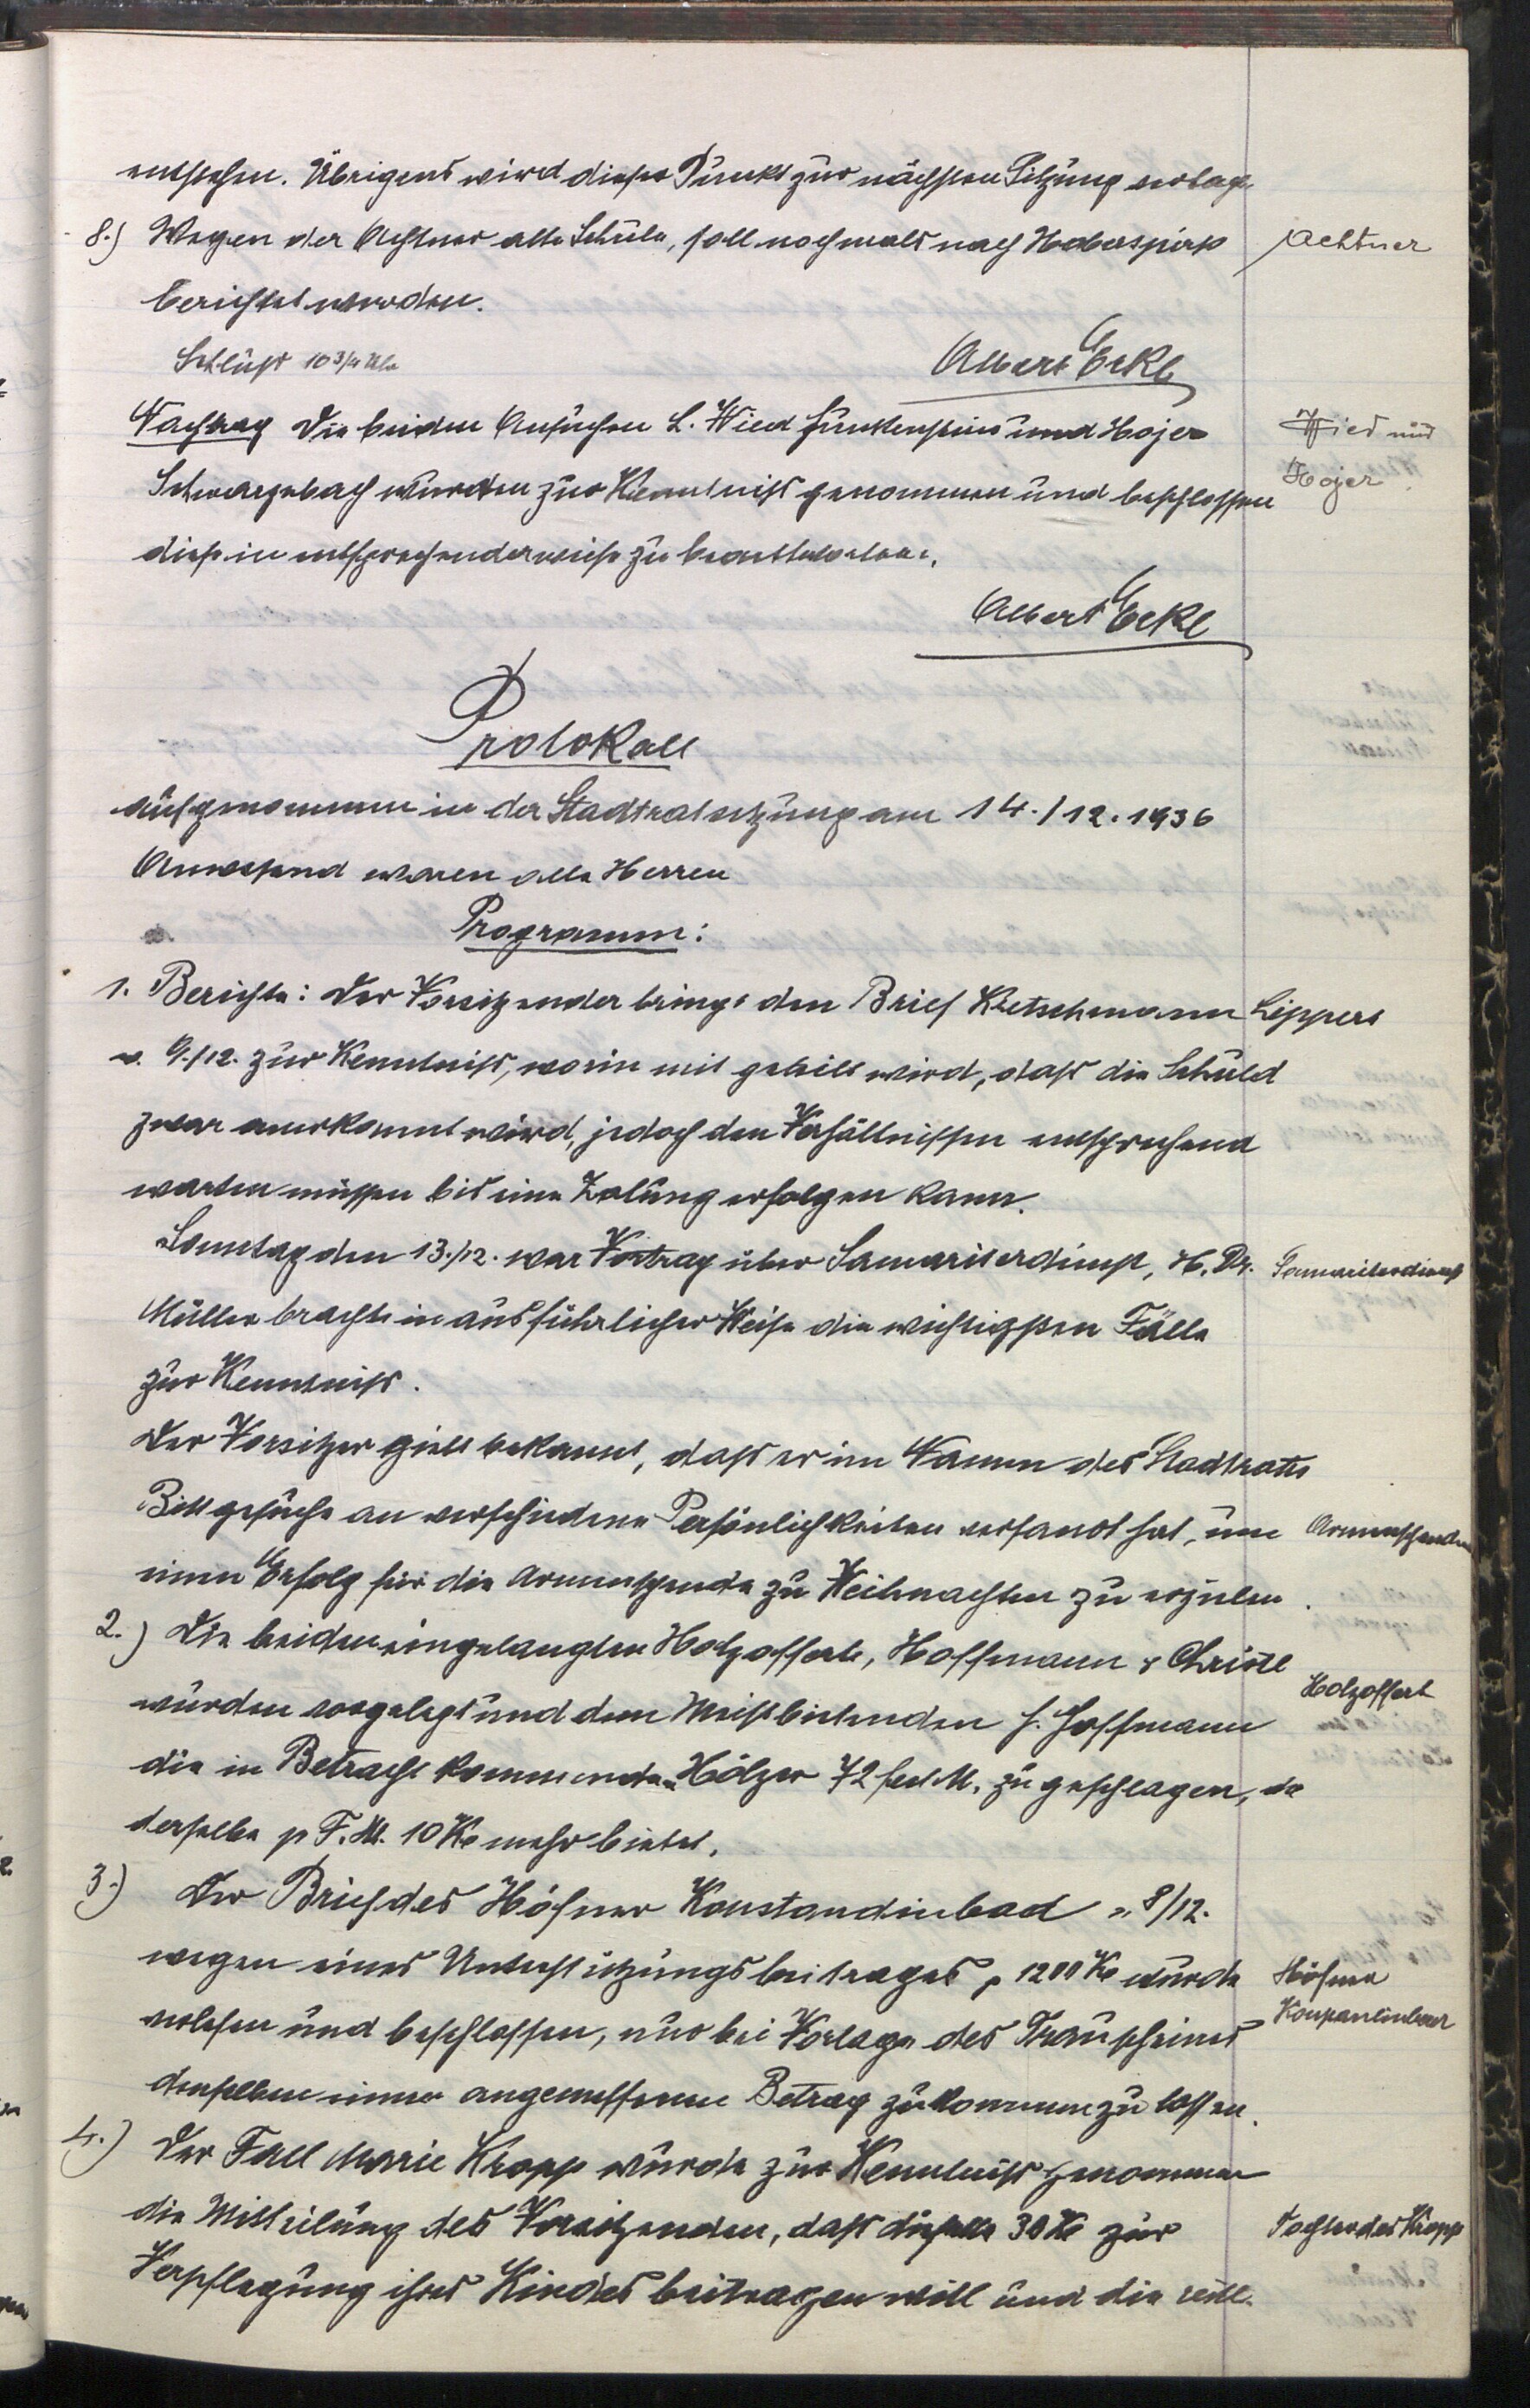 entstehen. Übrigens wird dieser Punkt zur nächsten Sitzung vertagt
8.) Wegen der Achtner alte Schule, soll nochmals nach Haberspirk
Achtner
berichtet werden.
Schluß 10 3/4 Uhr
Albert Eckl
Nachtrag Die beiden Ansuchen L. Wied und Hojer
Wied und
Hojer
Schwarzenbach wurden zur Kenntniß genommen und beschlossen
diese in entsprechenderweise zu
Albert Eckl
Protokoll
aufgenommen in der Stadtratsitzung am 14./12. 1936
Anwesend waren alle Herren
Programm:
1. Berichte: Der Vorsitzender bringt den Brief Kretschmann
Lippert
v. 9./12. zur Kenntniß, worin mit geteilt wird, daß die Schuld
zwar anerkannt wird, jedoch den Verhältnissen entsprechend
warten müssen bis eine Zalung erfolgen kann.
Sonntag den 13./12. war Vortrag über Samariterdienst, H. Dr.
Samariterdienst
Müller brachte in ausführlicher Weise die wichtigsten Fälle
zur Kenntniß.
Der Vorsitzer giebt bekannt, daß er im Namen des Stadtrates
Bittgesuche an verschiedene Persönlichkeiten versandt hat, um
Armenspende
einen Erfolg für die Armenspende zu Weihnachten zu erzielen.
2.) Die beiden eingelangten Holzofferte, Hoffmann & Christl
Holzoffert
wurden vorgelegt und dem Meistbietenden H. Hoffmann
die in Betracht kommenden Hölzer 72 fest M. zugeschlagen, da
derselbe p F.M. 10 Kč mehr bietet.
3.) Der Brief des Höfner Konstandinbad v. 8/12.
wegen eines Unterstützungsbeitrages p 1200 Kč wurde
Höfner
verlesen und beschlossen, nur bei Vorlage des Trauscheines
denselben einen angemessenen Betrag zukommen zu lassen.
4.) Der Fall Marie Kropp wurde zur Kenntniß genommen
die Mitteilung des Vorsitzenden, daß dieselbe 30 Kč zur
Tochter des Kropp
Verpflegung ihres Kindes beitragen will und die restl.